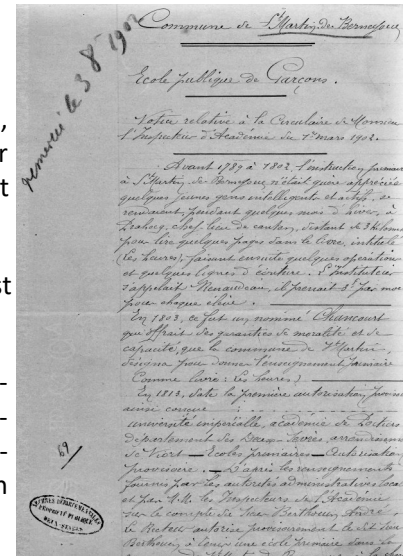 Commune de St Martin de Bernegoue
Ecole publique de Garçons.
remercié le 3 8 1902
Notice relative à la Circulaire de Monsieur
l'Inspecteur d'Académie du 1er mars 1902.
Avant 1789 à 1802, l'instruction primaire
à St Martin de Bernegoue n'était guère appréciée
quelques jeunes gens intelligents et actifs, se
rendaient, pendant quelques mois d'hiver, à
Prahecq, chef-lieu de canton, distant de 3 kilom
pour lire quelques pages dans le livre, intitulé
(Les heures), faisant ensuite quelques opérations
et quelques lignes d'écriture. L'Instituteur
s'appelait il prenait par mois
pour chaque élève.
En 1803, ce fut un nommé Chancourt
qui offrait des garanties de moralité et de
capacité, que la commune de St Martin
désigna pour donner l'enseignement primaire
Comme livre: Les heures)
En 1813, date la première autorisation
ainsi conçue :
université impériale, académie de Poitiers
département des Deux-Sèvres, arrondissement
de Niort — Ecoles primaires — Autorisation
provisoire. — D'après les renseignements
fournis par les autorités administratives locales
et par M.M. les Inspecteurs de l'Académie
sur le compte du Sieur Berthoux, André,
le Recteur autorise provisoirement le dit Sieur
Berthoux, à tenir une école primaire dans la
69
ARCHIVES DEPARTEMENTALES
DEUX-SEVRES
,
r
t
st
-
-
-
n